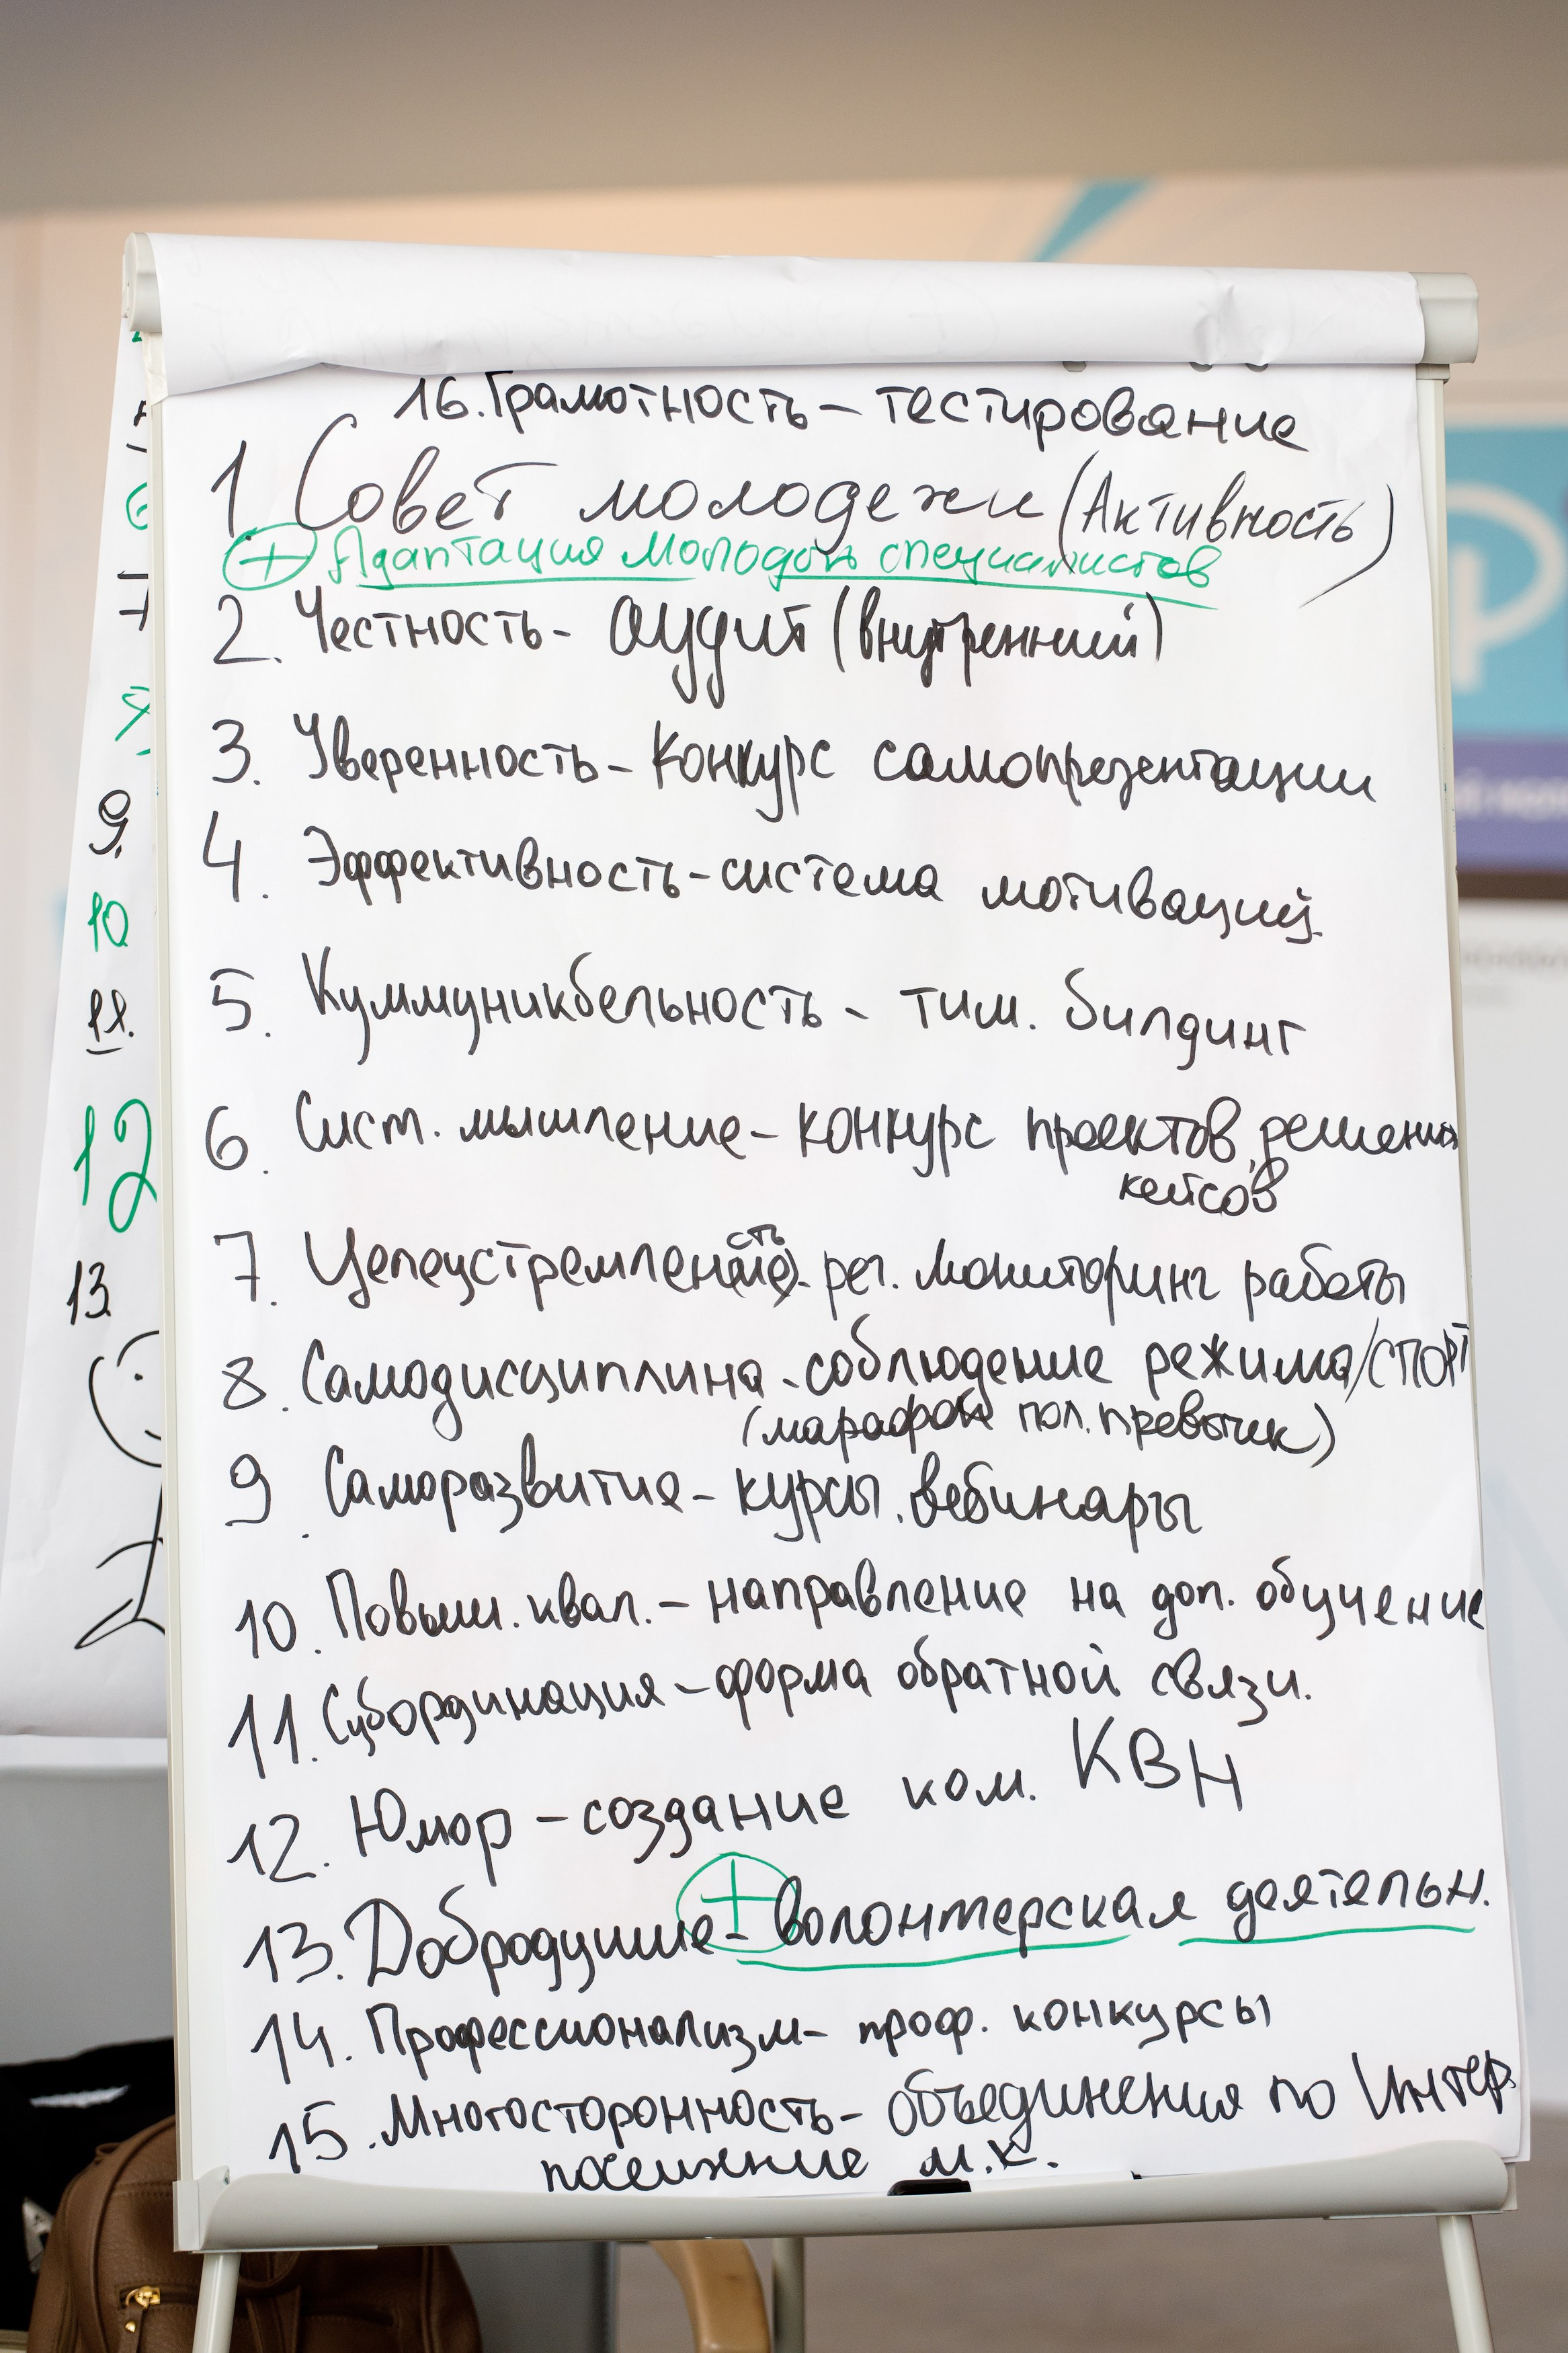 16. Грамотность – тестирование
1 Совет молодежи (Активность)
+ Адаптация молодых специалистов
2. Честность - аудит (внутренний)
3. Уверенность - конкурс самопрезентации
4. Эффективность - система мотиваций.
5. Куммуникбельность - тим. билдинг
6. Сист. мышление - конкурс проектов, решение
кейсов
7. Целеустремлен сть - рег. мониторинг работы
8. Самодисциплина - соблюдение режима/СПОРТ
(марафон пол. превычек)
9. Саморазвитие - курсы, вебинары
10. Повыш. квал. - направление на доп. обучение
11. Субординация - форма обратной связи.
12. Юмор - создание ком. КВН
13. Добродушие - + волонтерская деятельн.
14. Профессионализм - проф. конкурсы
15. Многосторонность - объединения по Интер.
м.к.
9.
10.
11.
12
13.